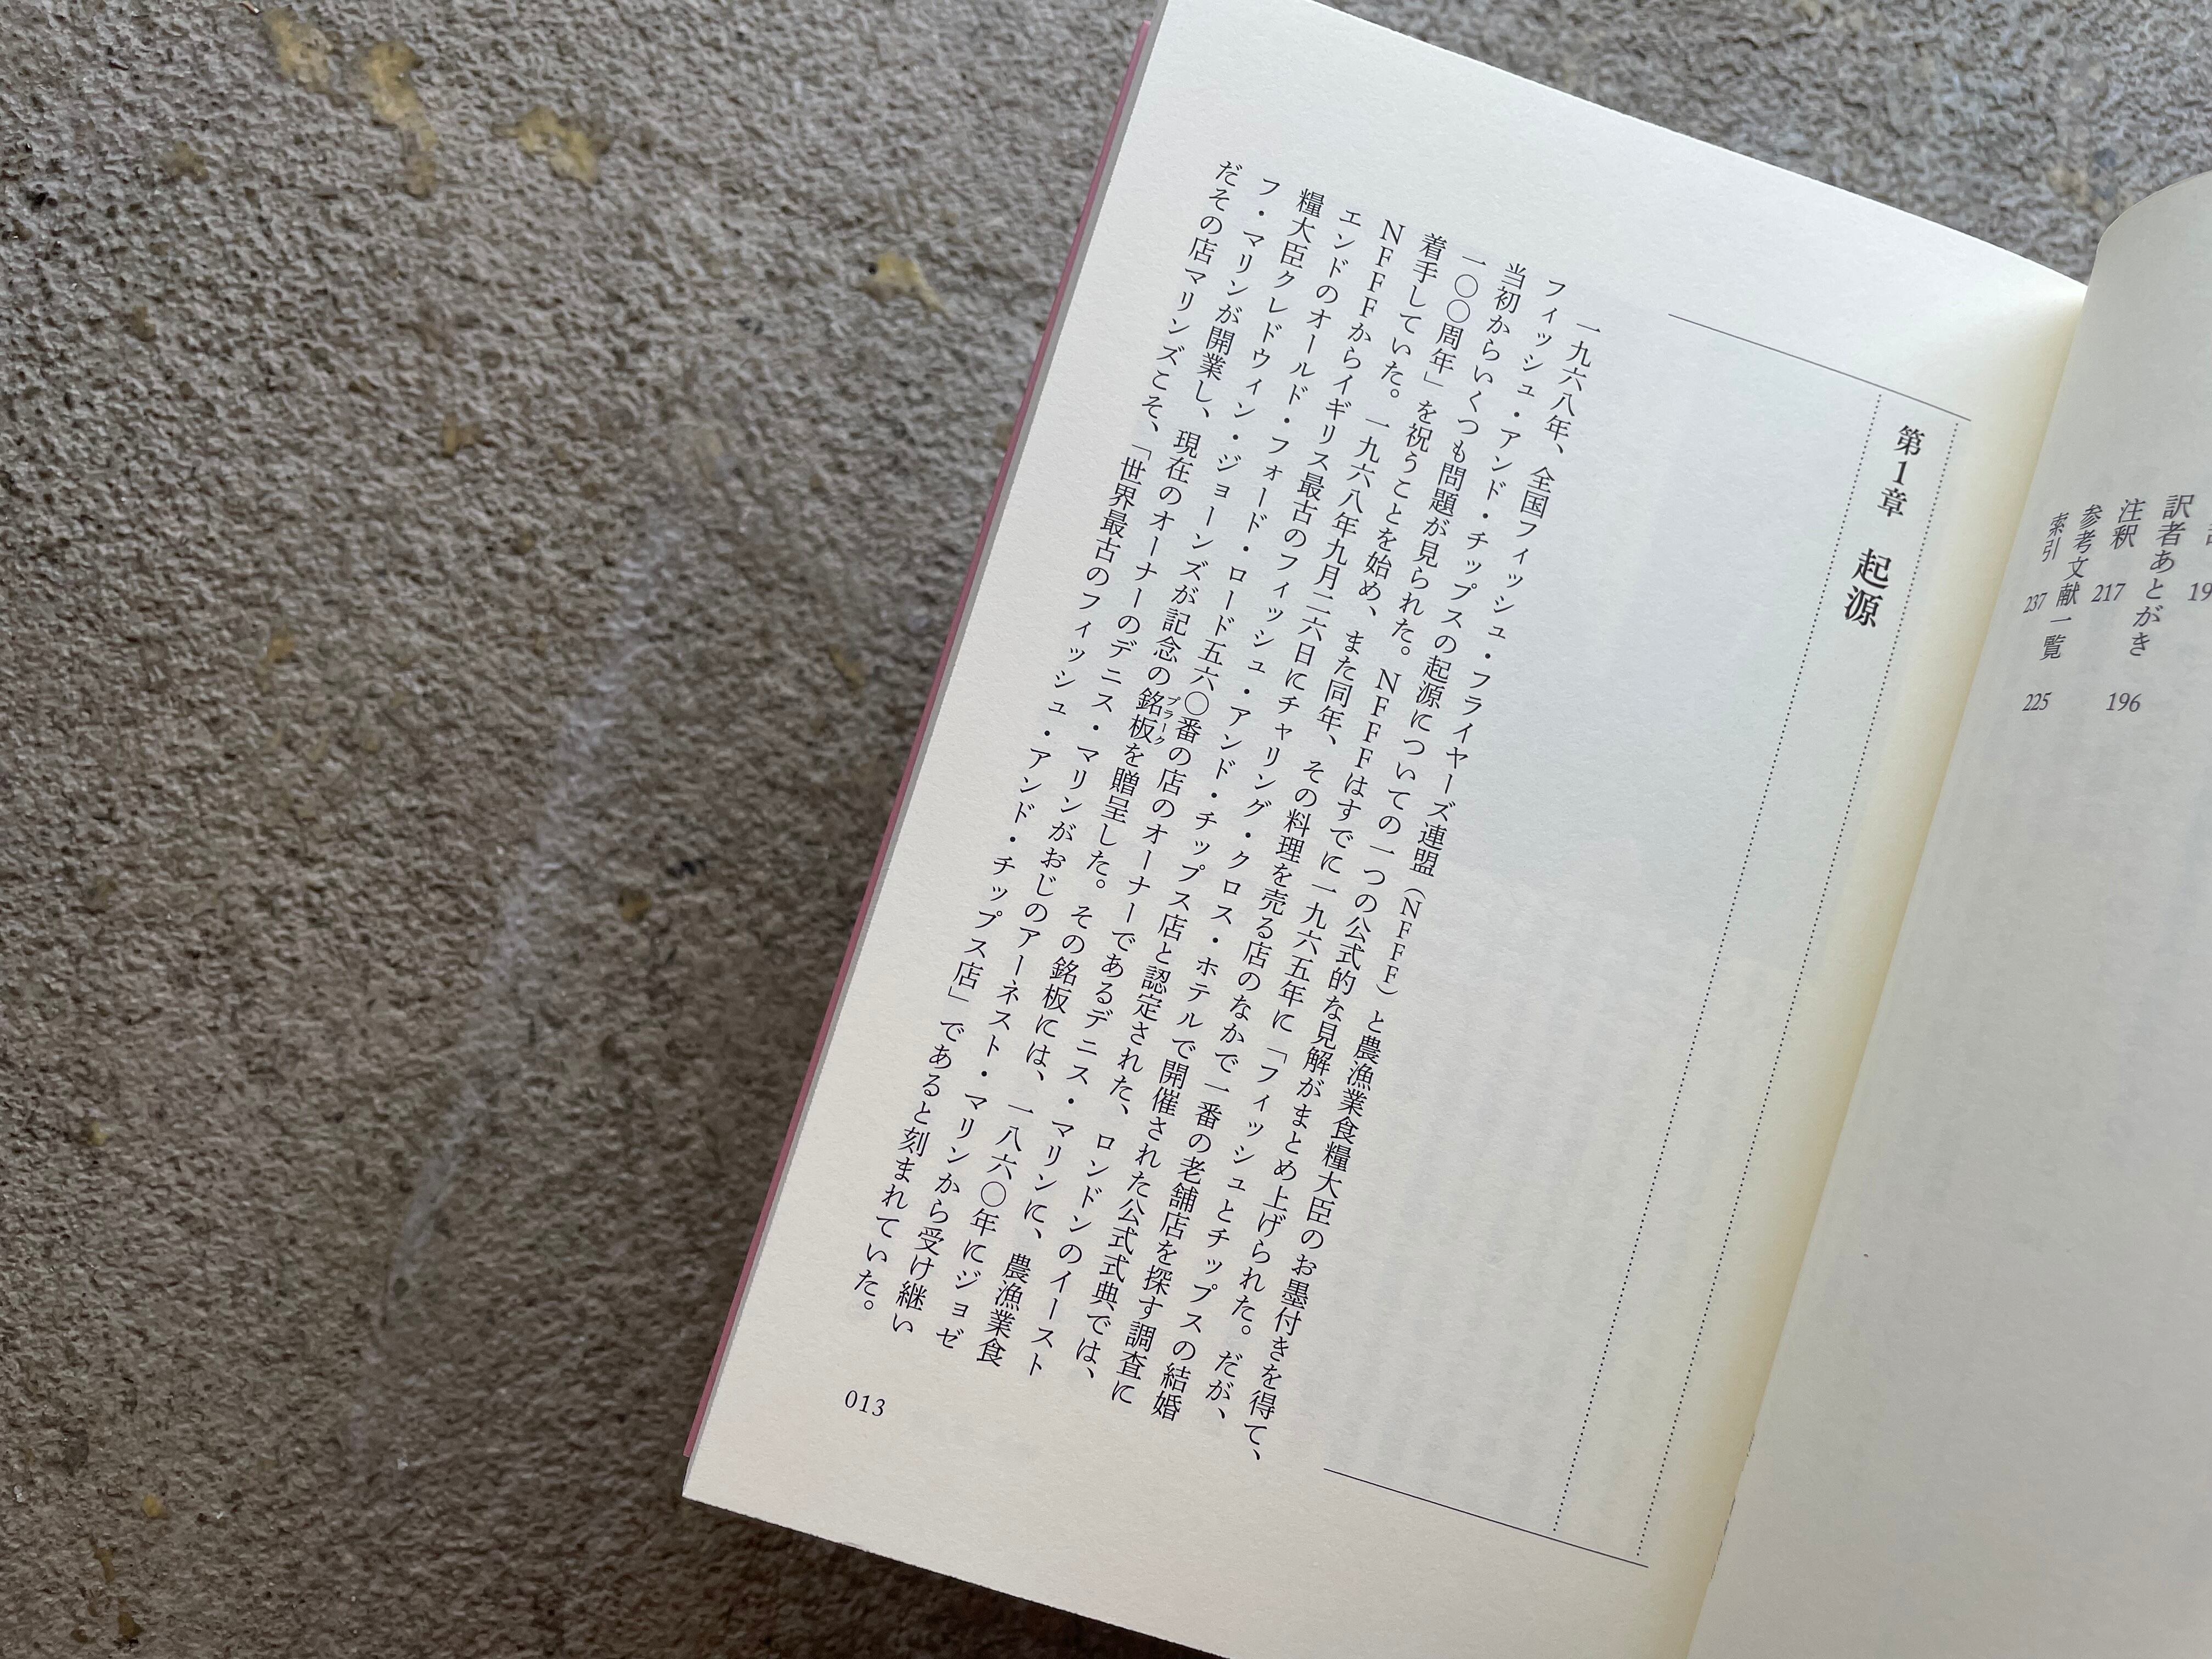 訳者あとがき 196
注釈 217
参考文献一覧 225
索引 237
第1章 起源
一九六八年、全国フィッシュ・フライヤーズ連盟（NFFF）と農漁業食糧大臣のお墨付きを得て、
フィッシュ・アンド・チップスの起源についての一つの公式的な見解がまとめ上げられた。だが、
当初からいくつも問題が見られた。NFFFはすでに一九六五年に「フィッシュとチップスの結婚
一〇〇周年」を祝うことを始め、また同年、その料理を売る店のなかで一番の老舗店を探す調査に
着手していた。一九六八年九月二六日にチャリング・クロス・ホテルで開催された公式式典では、
NFFFからイギリス最古のフィッシュ・アンド・チップス店と認定された、ロンドンのイースト
エンドのオールド・フォード・ロード五六〇番の店のオーナーであるデニス・マリンに、農漁業食
糧大臣クレドウィン・ジョーンズが記念の銘板プラークを贈呈した。その銘板には、一八六〇年にジョゼ
フ・マリンが開業し、現在のオーナーのデニス・マリンがおじのアーネスト・マリンから受け継い
だその店マリンズこそ、「世界最古のフィッシュ・アンド・チップス店」であると刻まれていた。
013